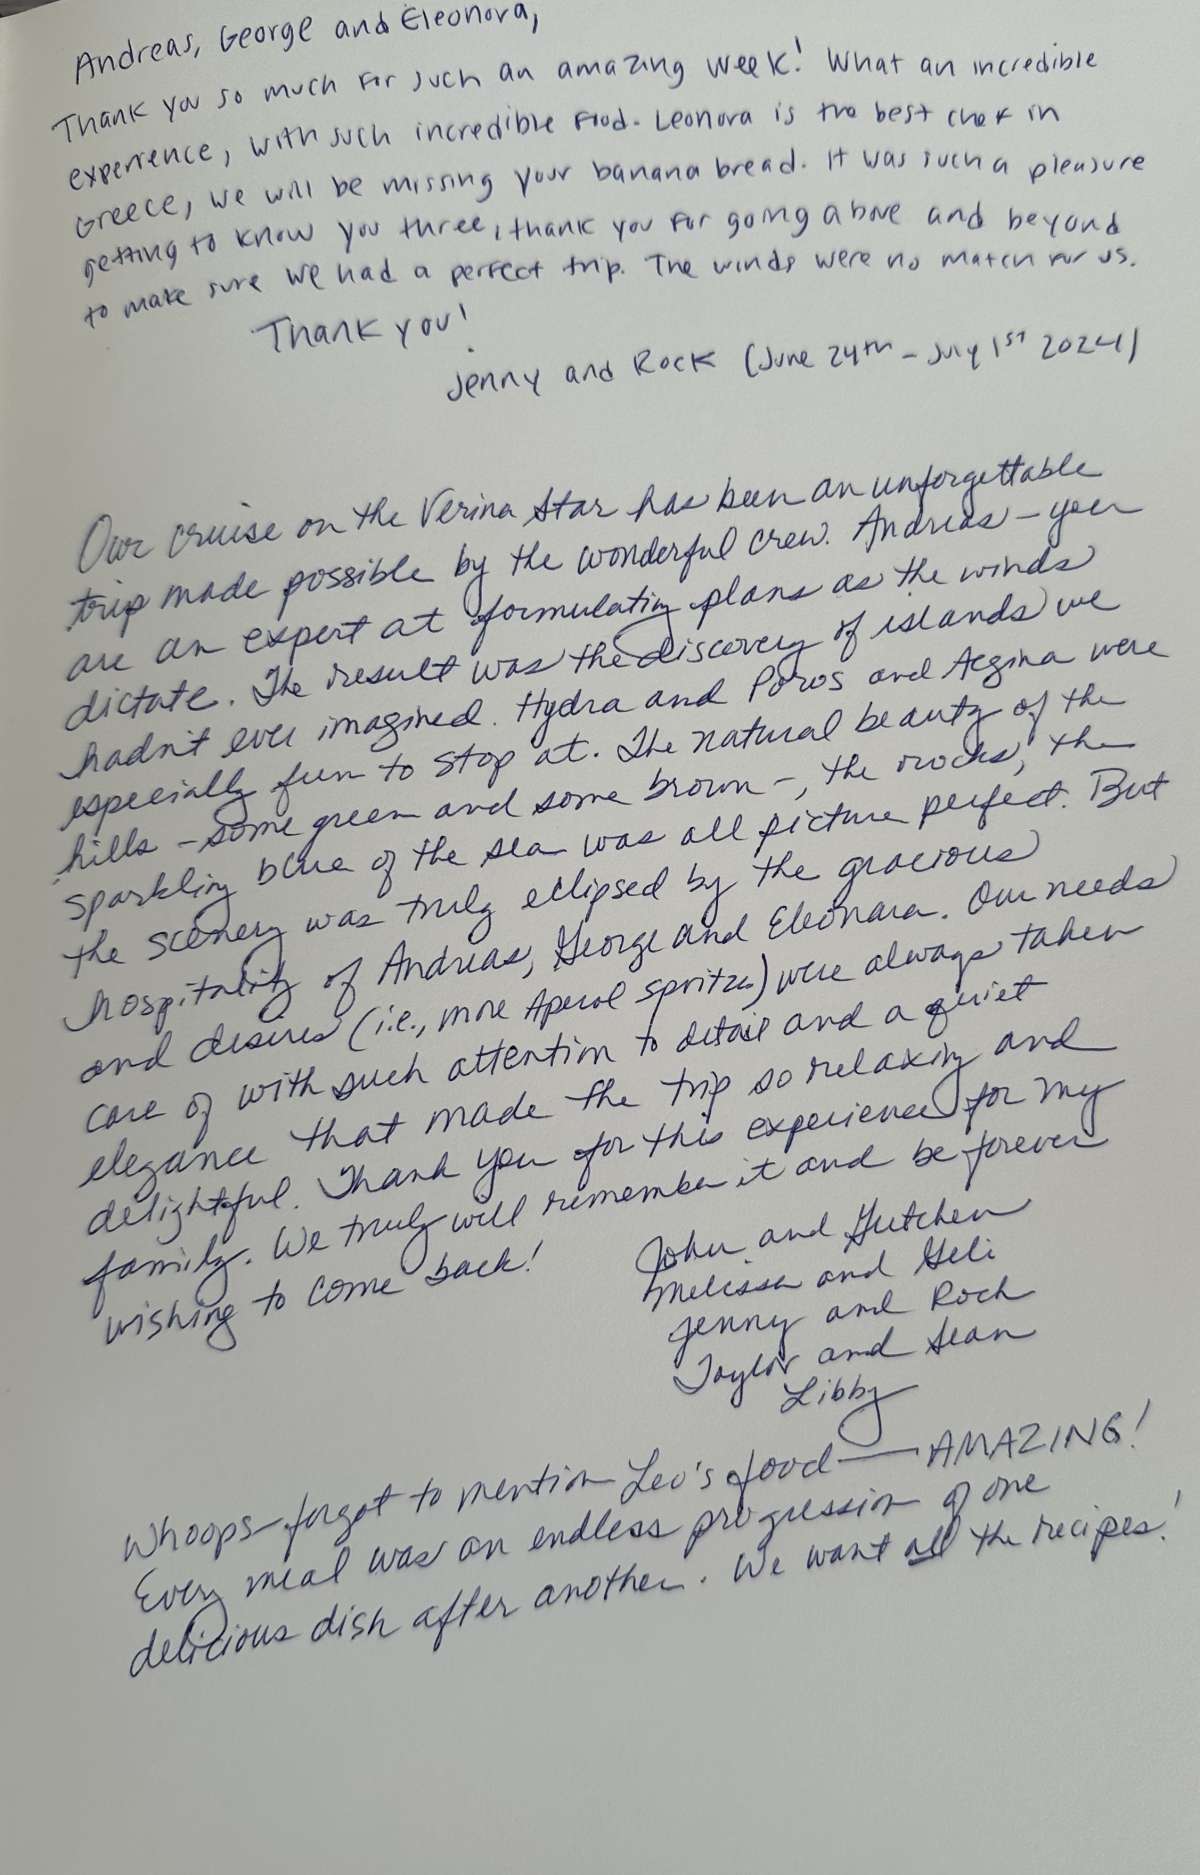 Andreas, George and Eleonora,
Thank you so much for such an amazing week! What an incredible
experience, with such incredible food. Leonora is the best chef in
Greece, we will be missing your banana bread. It was such a pleasure
getting to know you three, thank you for going above and beyond
to make sure we had a perfect trip. The winds were no match for us.
Thank you!
Jenny and Rock (June 24th - July 1st 2024)
Our cruise on the Verina Star has been an unforgettable
trip made possible by the wonderful crew. Andreas - you
are an expert at formulating plans as the winds
dictate. The result was the discovery of islands we
hadn't ever imagined. Hydra and Poros and Aegina were
especially fun to stop at. The natural beauty of the
hills - some green and some brown -, the rocks, the
sparkling blue of the sea was all picture perfect. But
the scenery was truly ecclipsed by the gracious
hospitality of Andreas, George and Eleonara. Our needs
and desires (i.e., more Aperol spritzs) were always taken
care of with such attention to detail and a quiet
elegance that made the trip so relaxing and
delightful. Thank you for this experience for my
family. We truly will remember it and be forever
wishing to come back!
John and Gutchen
Melissa and Geli
Jenny and Rock
Taylor and Sean
Libby
Whoops - forgot to mention Leo's food — AMAZING!
Every meal was an endless progression of one
delicious dish after another. We want all the recipes!